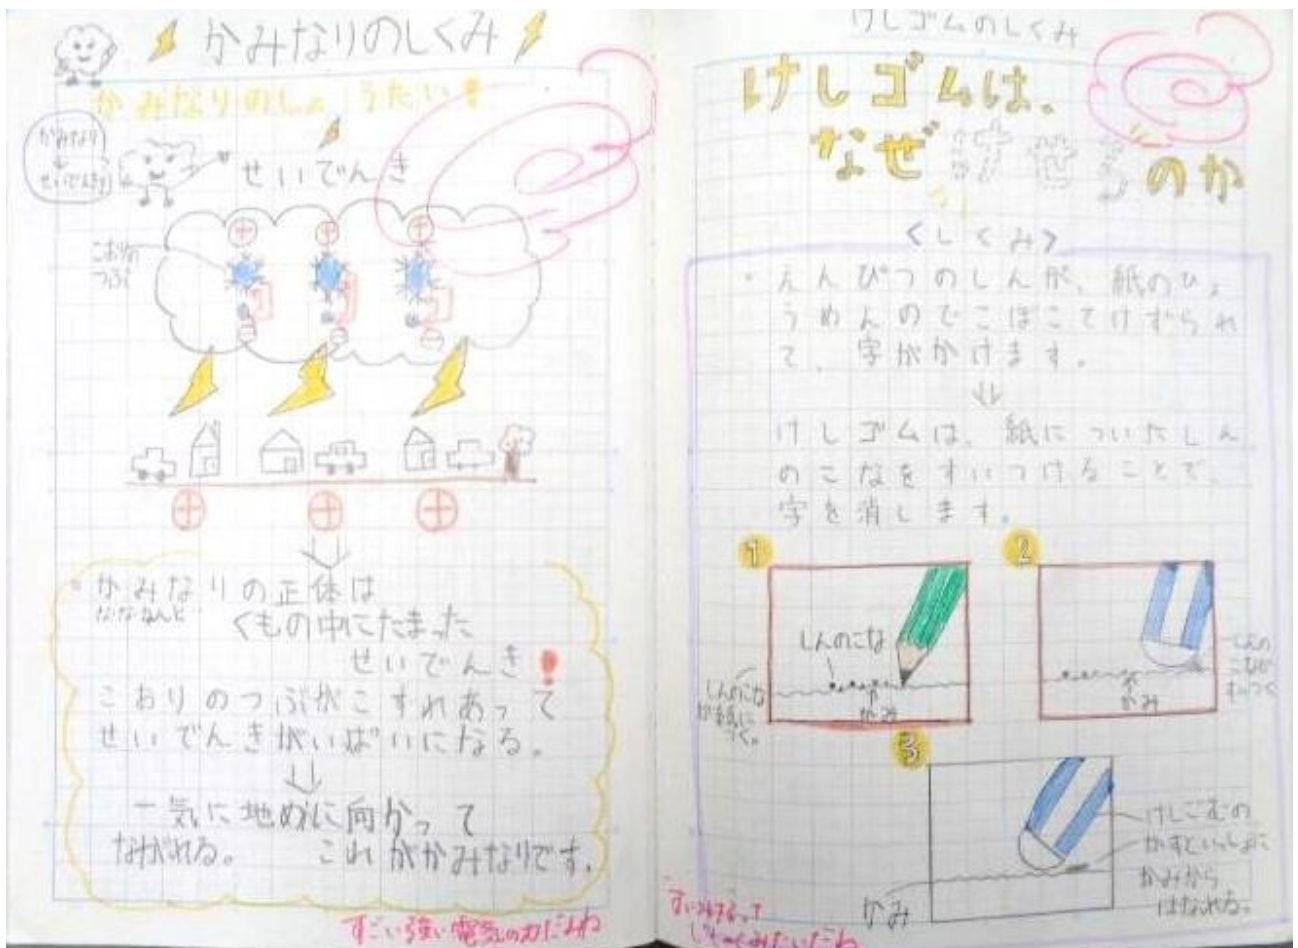 かみなりのしくみ
かみなりのしょうたい
かみなり
せいでんき
せいでんき
こおりの
つぶ
かみなりの正体は
なななんと
くもの中にたまった
せいでんき!
こおりのつぶがこすれあって
せいでんきがいぱいになる。
一気に地めんに向かって
ながれる。 これがかみなりです。
すごい強い電気の力だよね
けしゴムのしくみ
けしゴムは、
なぜけせるのか
<しくみ>
・えんぴつのしんが、紙のひょ
うめんのでこぼこでけずられ
て、字がかけます。
けしゴムは、紙についたしん
のこなをすいつけることで
字を消します。
1
しんのこな
しんのこな
が紙に
つく。
かみ
2
しんの
こなが
かみ
3
けしごむの
かすといっしょに
かみから
はなれる。
かみ
すいつけるって
じしゃくみたいだね